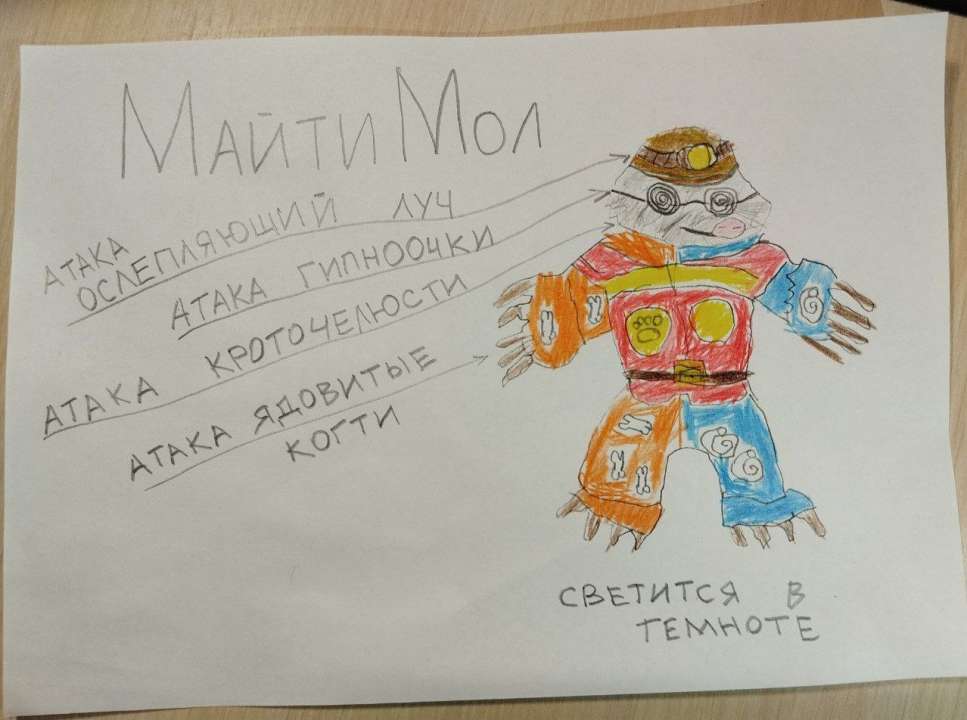 Майти Мол
АТАКА
ОСЛЕПЛЯЮЩИЙ ЛУЧ
АТАКА ГИПНООЧКИ
АТАКА КРОТОЧЕЛЮСТИ
АТАКА ЯДОВИТЫЕ
КОГТИ
СВЕТИТСЯ В
ТЕМНОТЕ